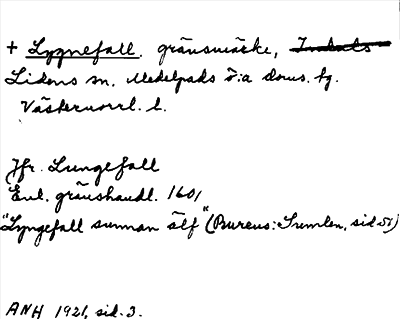 + Lygnefall, gränsmärke,
Lidens sn, Medelpads ö:a doms. hg.
Västernorrl. l.
Jfr. Lungefall
Enl. gränshandl. 1601
"Lyngefall sunnan älf" (Bureus: Sumlen, sid 51)
ANH 1921, sid. 3.